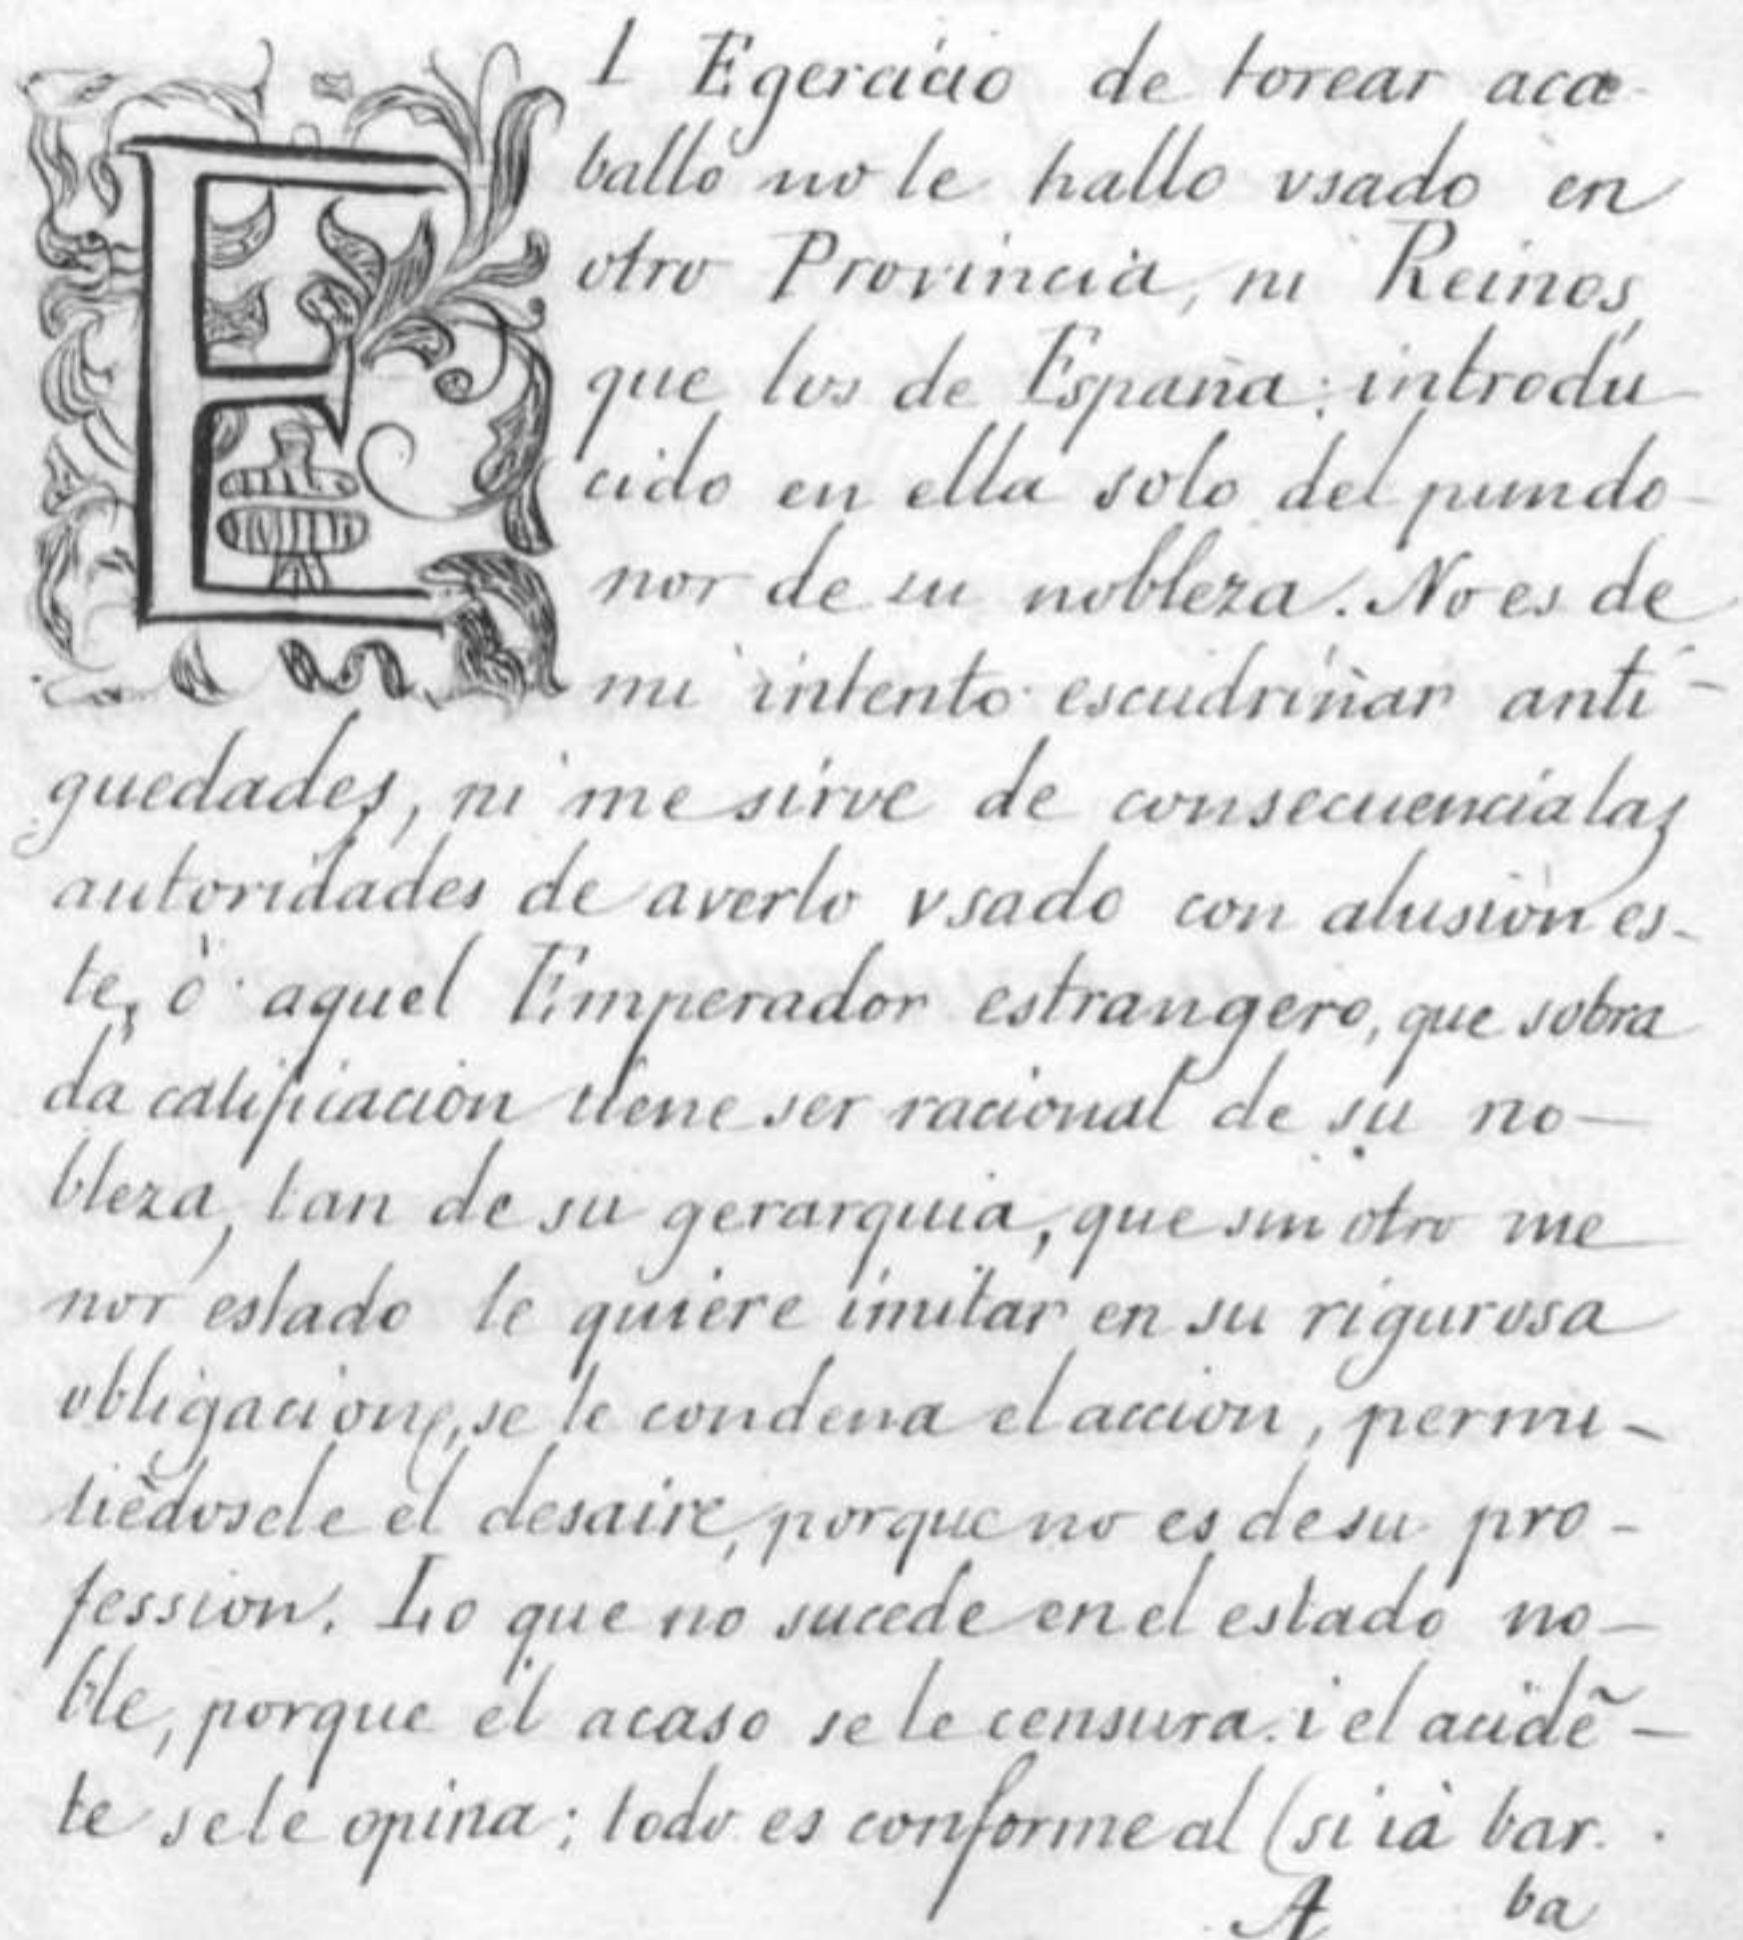 El Egercicio de torear aca-
ballo no le hallo vsado en
otro Provincia, ni Reinos,
que los de España; introdu-
cido en ella solo del pundo-
nor de su nobleza. No es de
mi intento escudriñar anti-
guedades, ni me sirve de consecuencia las
autoridades de averlo vsado con alusion es-
te, ò aquel Emperador estrangero, que sobra
da calificacion tiene ser racional de su no-
bleza, tan de su gerarquia, que sin otro me
nor estado le quiere imitar en su rigurosa
obligacione, se le condena el accion, permi-
tiēdosele el desaire, porque no es de su pro-
fession. Lo que no sucede en el estado no-
ble, porque el acaso se le censura. i el acidē-
te se le opina; todo es conforme al (si ià bar.
A ba